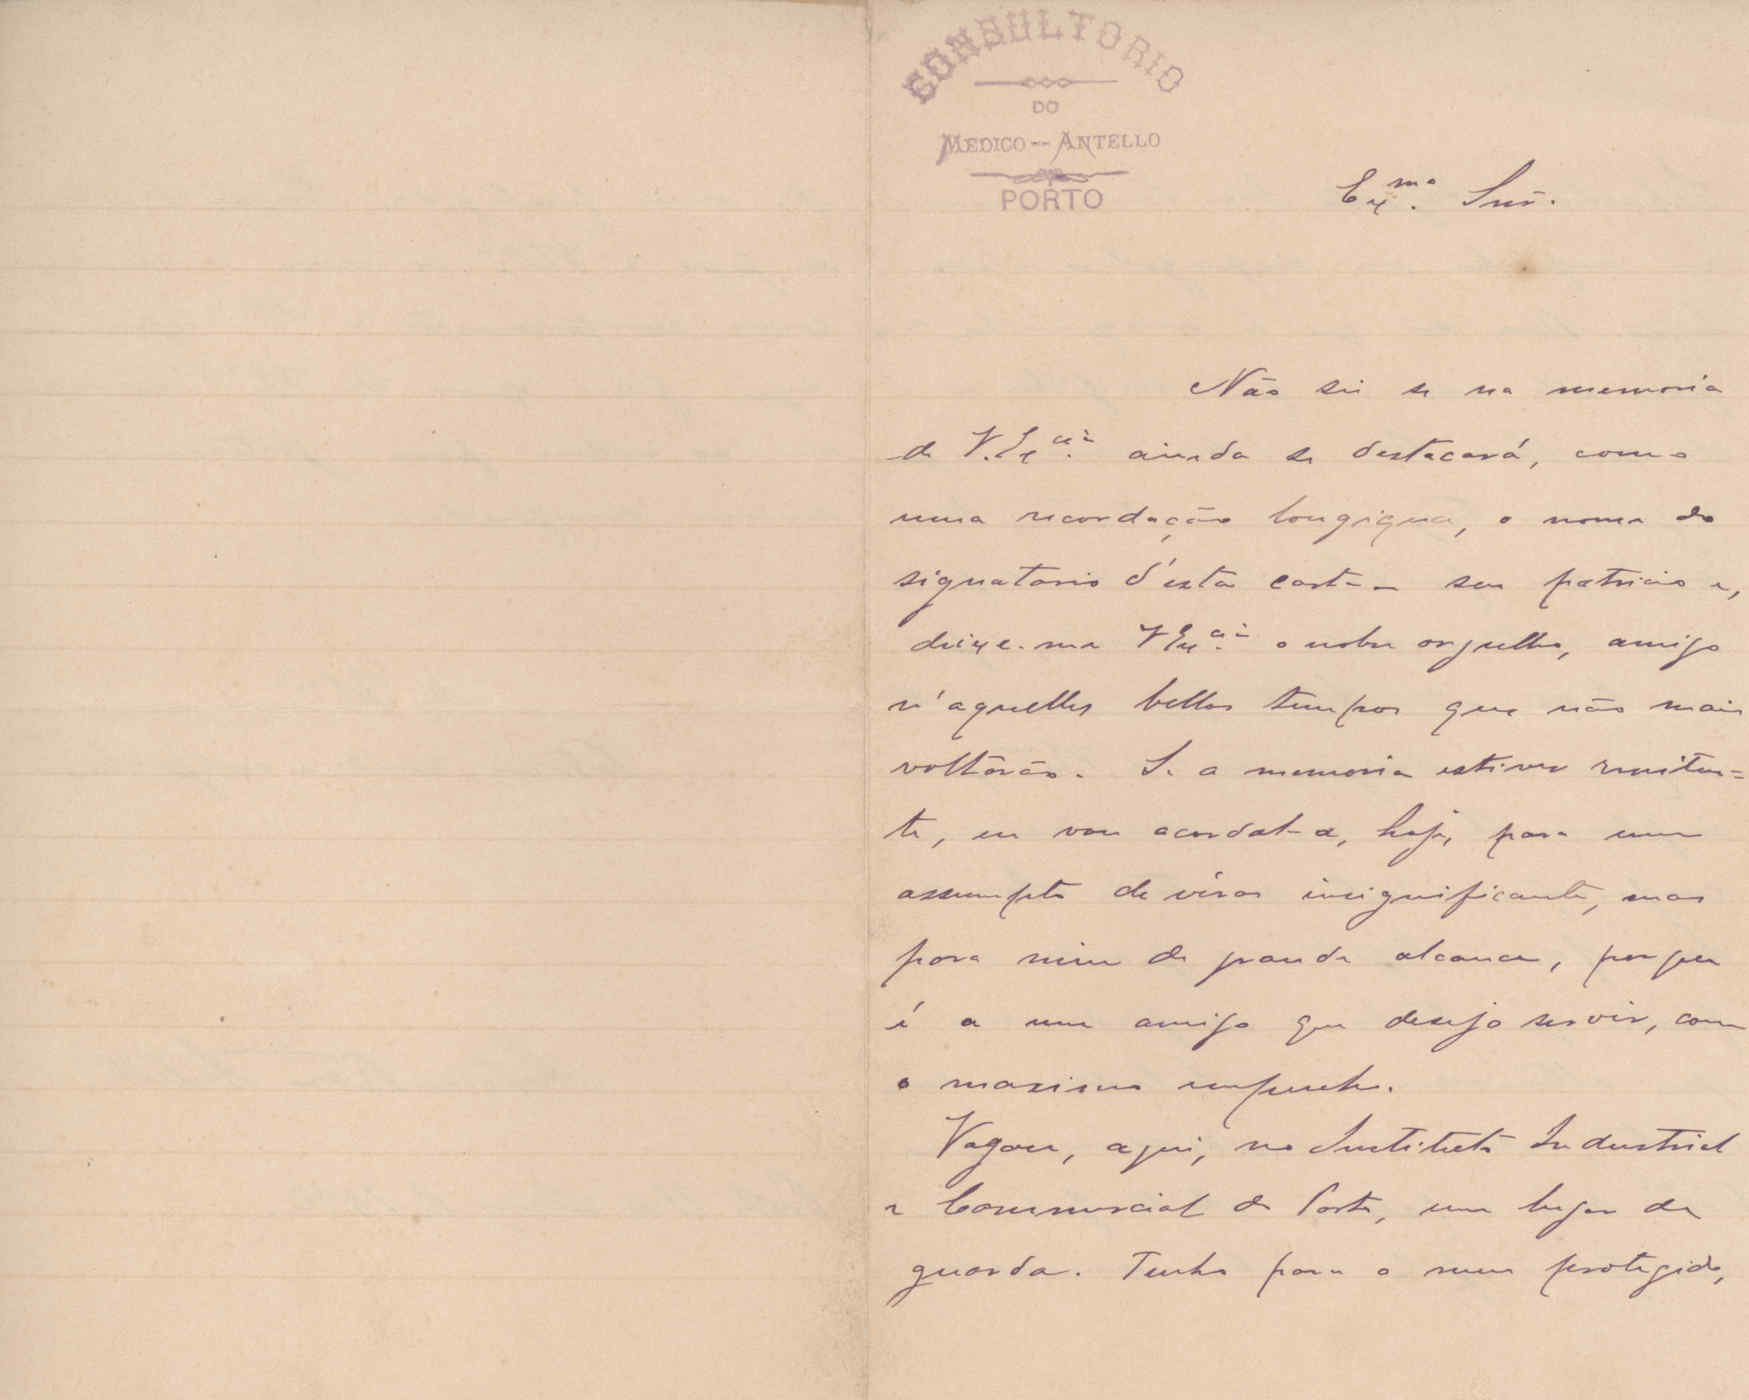 CONSULTORIO
DO
MEDICO--ANTELLO
PORTO
Ex.mo Snr.
Não sei se na memoria
de V. Ex.cia ainda se destacará, como
uma recordação longiqua, o nome do
signatario d'esta carta — seu patricio e,
deixe-me V Ex.cia o nobre orgulho, amigo
n'aquelles bellos tempos que não mais
voltarão. Se a memoria estiver renitен=
te, eu vou acordal-a, hoje, para um
assumpto deveras insignificante, mas
para mim de grande alcance, porque
é a um amigo que desejo servir, com
o maximo empenho.
Vagou, aqui, no Instituto Industrial
e Commercial do Porto, um lugar de
guarda. Tenho para o meu protegido,